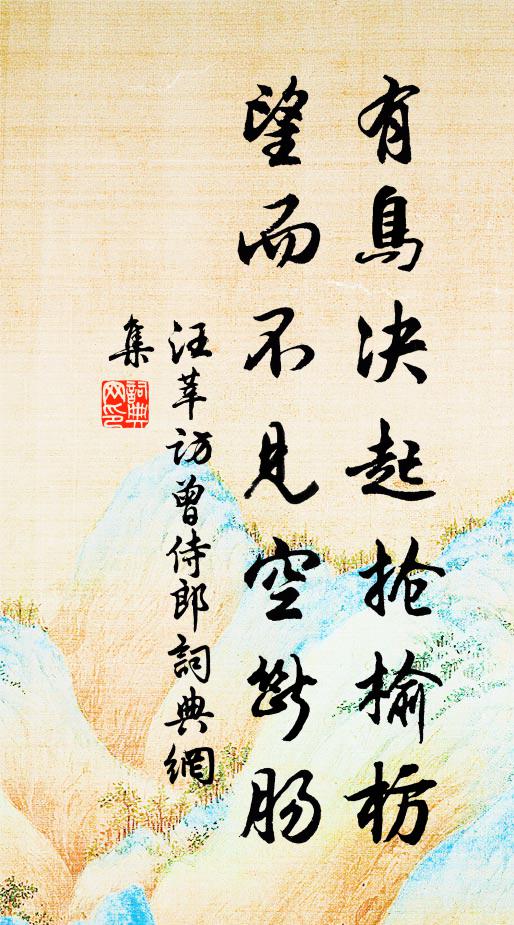 有鳥决起搶榆枋
望而不見空斷腸
汪莘訪曾侍郎詞典網
集
詞典網印